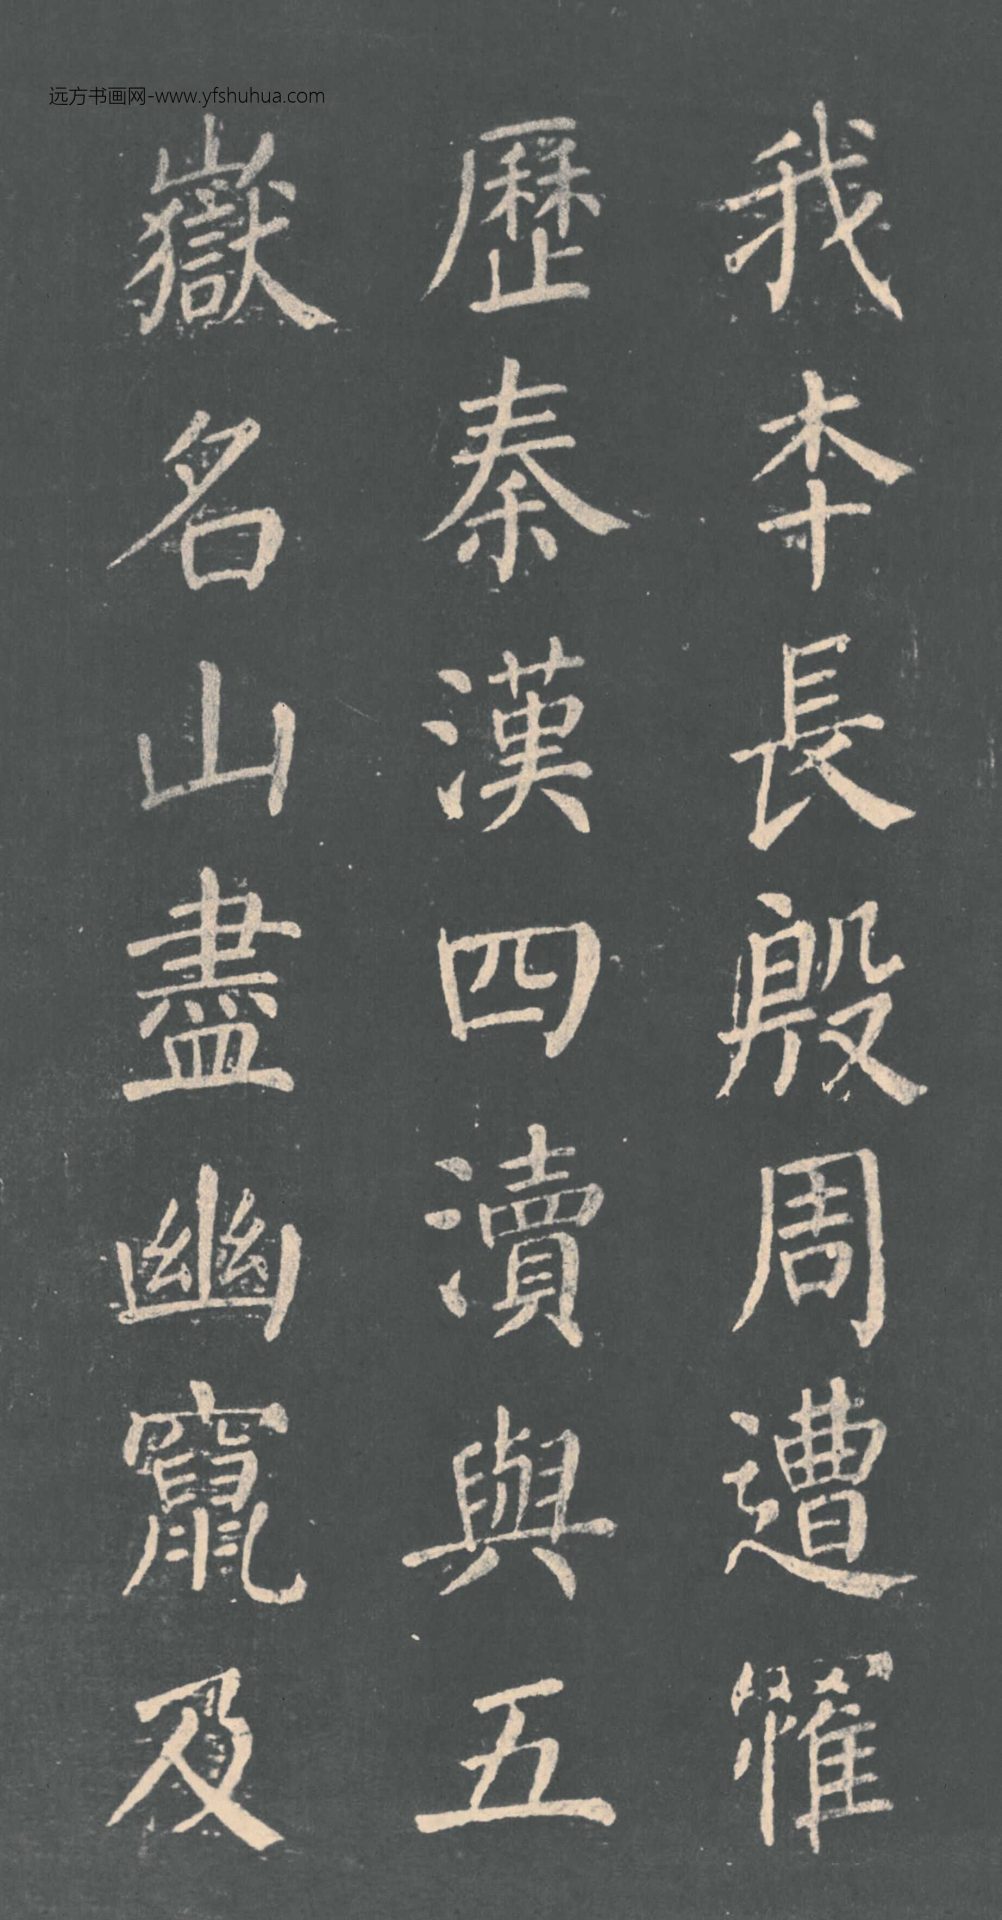 远方书画网-www.yfshuhua.com
我夲長殷周遭罹
歷秦漢四瀆與五
嶽名山盡幽竄及